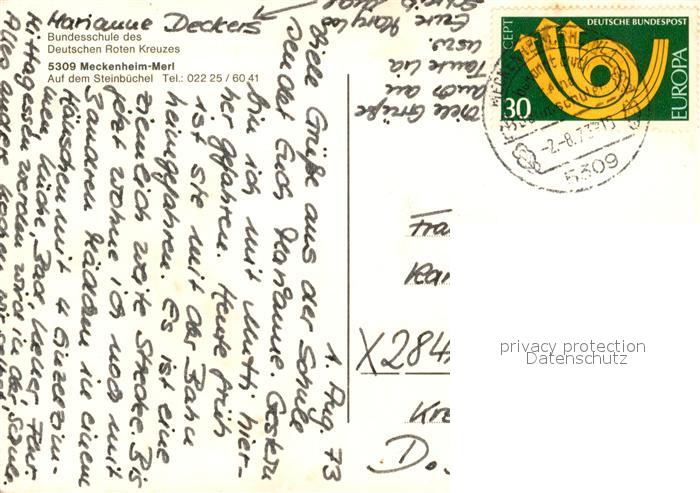 Marianne Deckers
Bundesschule des
Deutschen Roten Kreuzes
5309 Meckenheim-Merl
Auf dem Steinbüchel Tel.: 022 25 / 60 41
1. Aug. 73
Viele Grüße aus der Schule
sendet Euch Marianne. Gestern
bin ich mit Mutti hier-
her gefahren. Heute früh
ist sie mit der Bahn
heimgefahren. Es ist eine
ziemlich weite Strecke. Bis
jetzt wohne ich noch mit
3 anderen Mädchen in einem
Häuschen mit 4 Einzelzim-
mern, Küche, Bad, Keller.
Mittagessen werden wird in der
Alles andere machen wir selber.
Viele Grüße
auch an
Tante Lia
usw.
Eure Mary
CEPT
DEUTSCHE BUNDESPOST
30
EUROPA
-2.-8.73
5309
Fra
X 284
Kre
Do.
privacy protection
Datenschutz